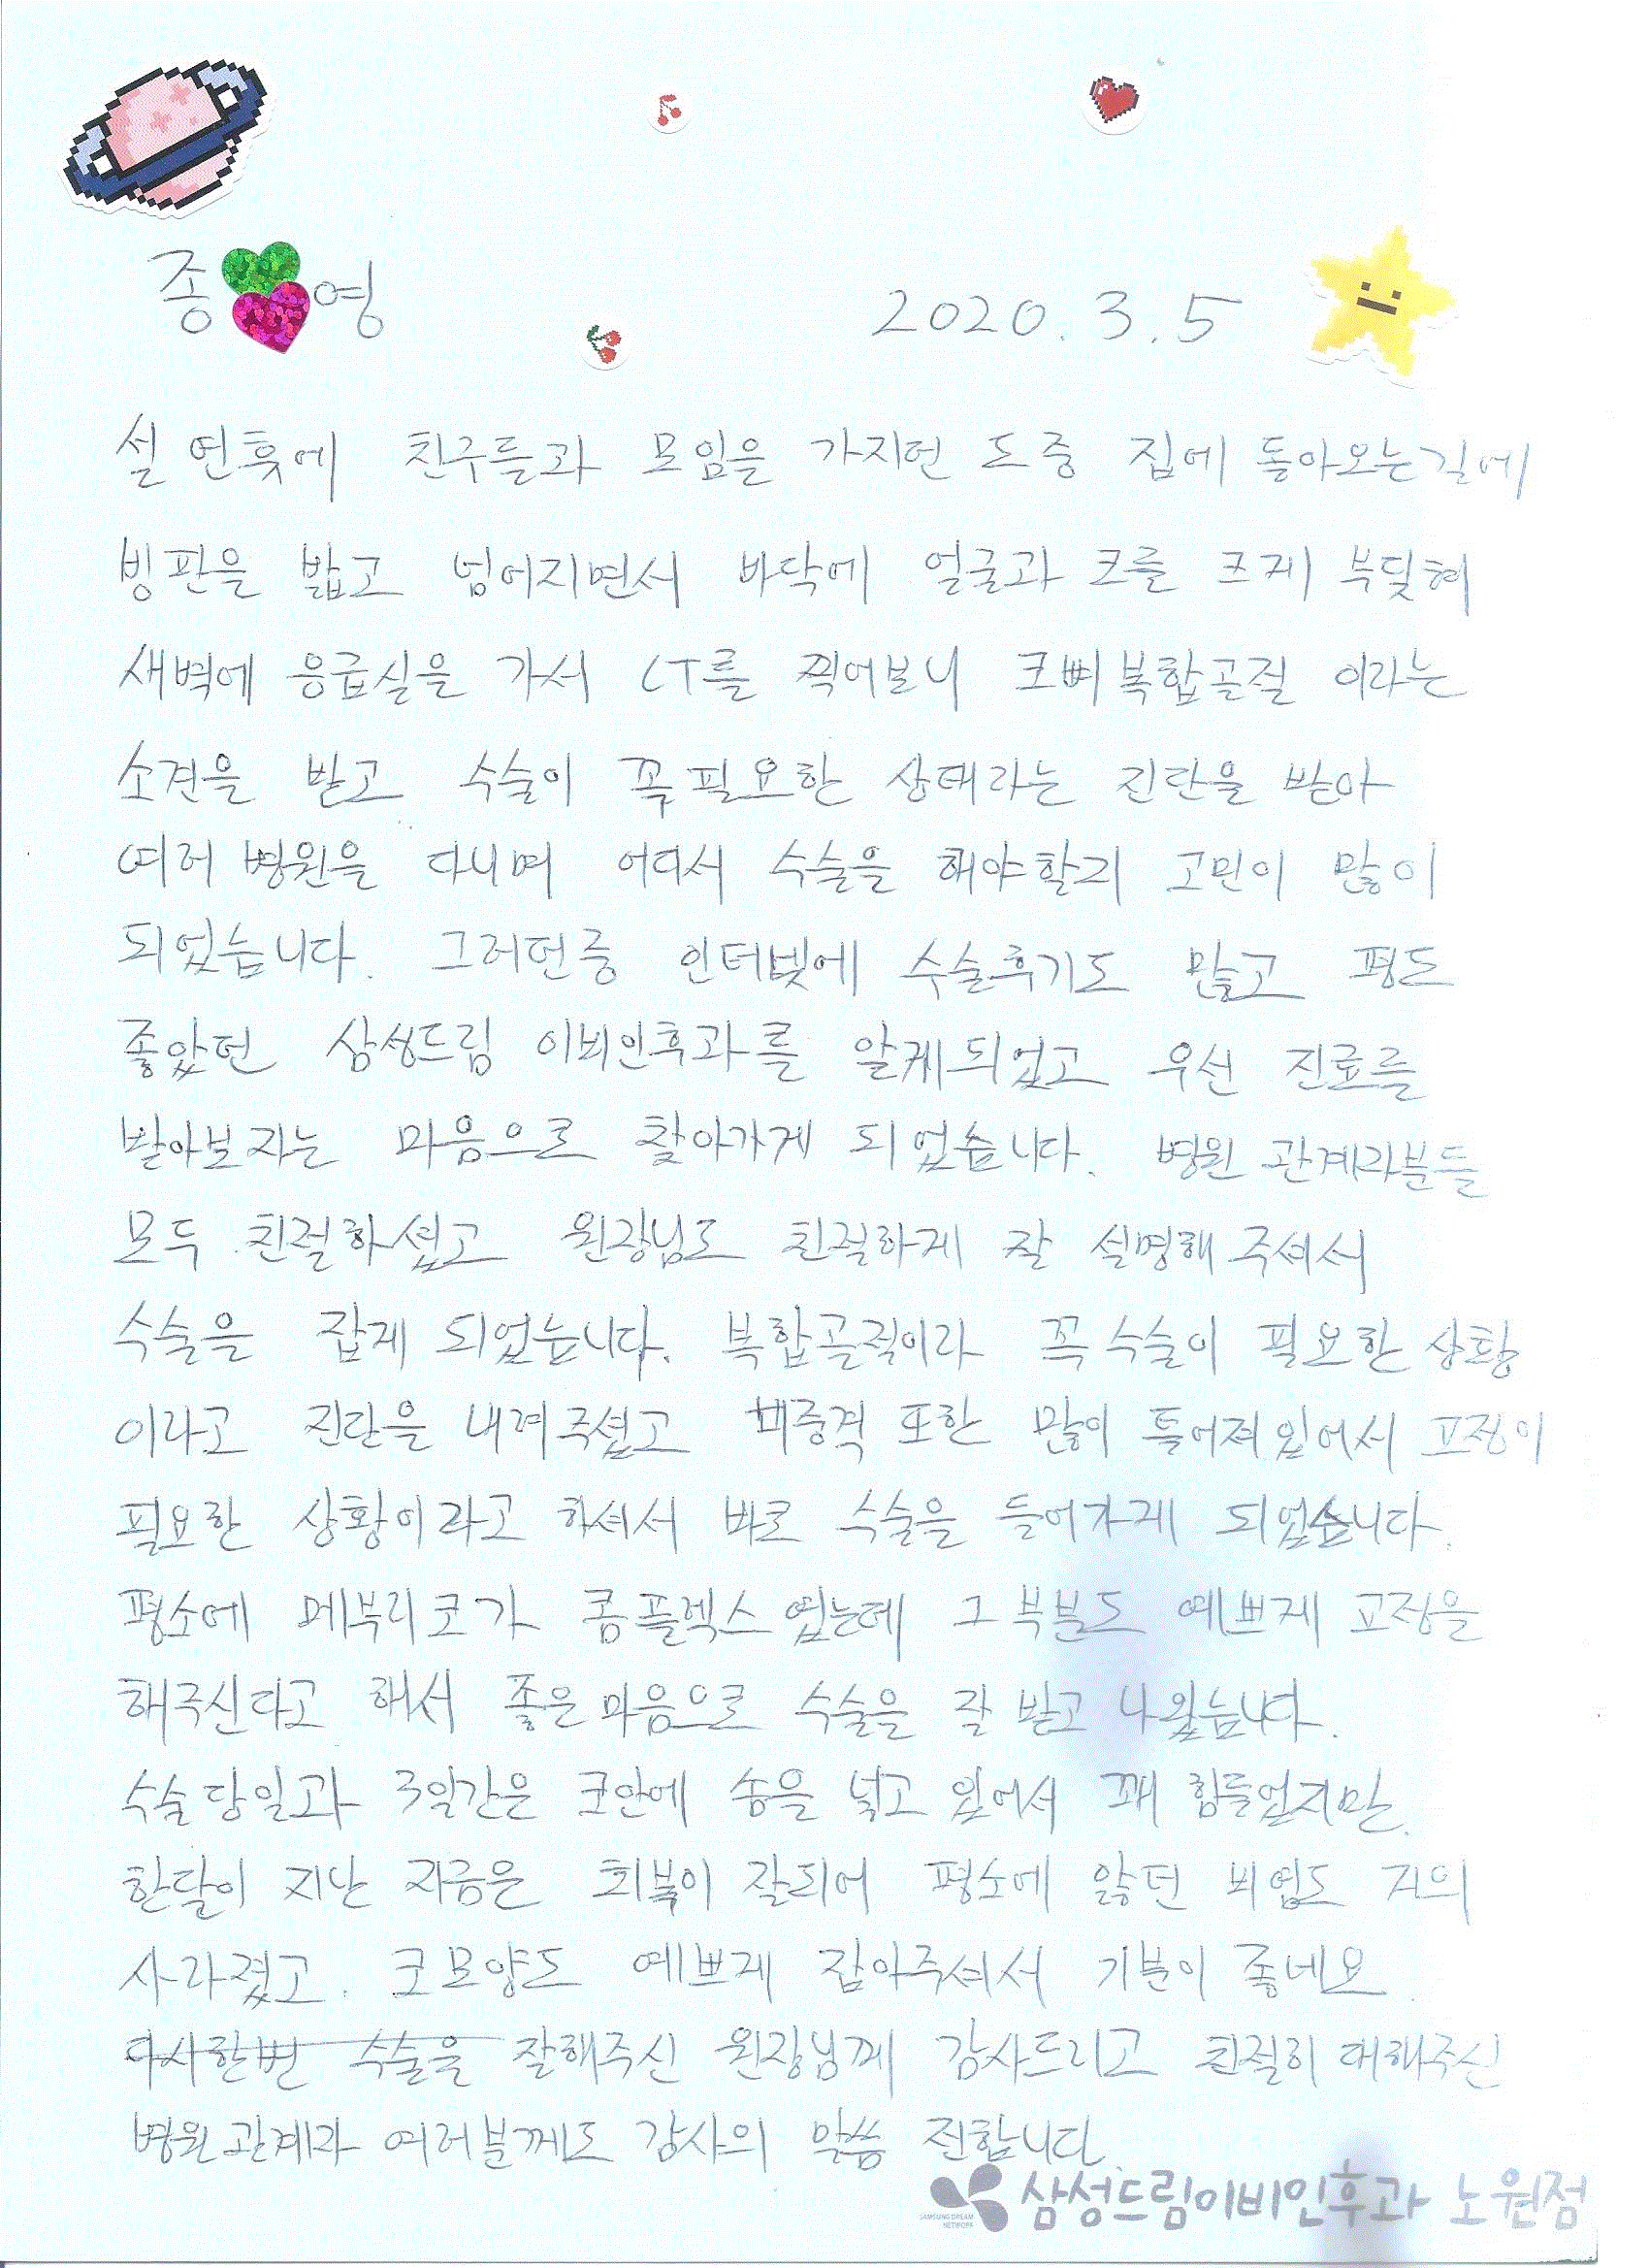 종 영
2020. 3. 5
설 연휴에 친구들과 모임을 가지던 도중 집에 돌아오는길에
빙판을 밟고 넘어지면서 바닥에 얼굴과 코를 크게 부딪혀
새벽에 응급실을 가서 CT를 찍어보니 코뼈복합골절 이라는
소견을 받고 수술이 꼭필요한 상태라는 진단을 받아
여러 병원을 다니며 어디서 수술을 해야할지 고민이 많이
되었습니다. 그러던중 인터넷에 수술후기도 많고 평도
좋았던 삼성드림 이비인후과를 알게되었고 우선 진료를
받아보자는 마음으로 찾아가게 되었습니다. 병원 관계자분들
모두 친절하셨고 원장님도 친절하게 잘 설명해 주셔서
수술을 잡게 되었습니다. 복합골절이라 꼭 수술이 필요한 상황
이라고 진단을 내려주셨고 비중격 또한 많이 틀어져있어서 교정이
필요한 상황이라고 하셔서 바로 수술을 들어가게 되었습니다.
평소에 메부리코가 콤플렉스였는데 그 부분도 예쁘게 교정을
해주신다고 해서 좋은마음으로 수술을 잘 받고 나왔습니다.
수술당일과 3일간은 코안에 솜을 넣고 있어서 꽤 힘들었지만
한달이 지난 지금은 회복이 잘되어 평소에 앓던 비염도 거의
사라졌고. 코모양도 예쁘게 잡아주셔서 기분이 좋네요.
다시한번 수술을 잘해주신 원장님께 감사드리고 친절히 대해주신
병원관계자 여러분께도 감사의 말씀 전합니다.
삼성드림이비인후과 노원점
SAMSUNG DREAM
NETWORK